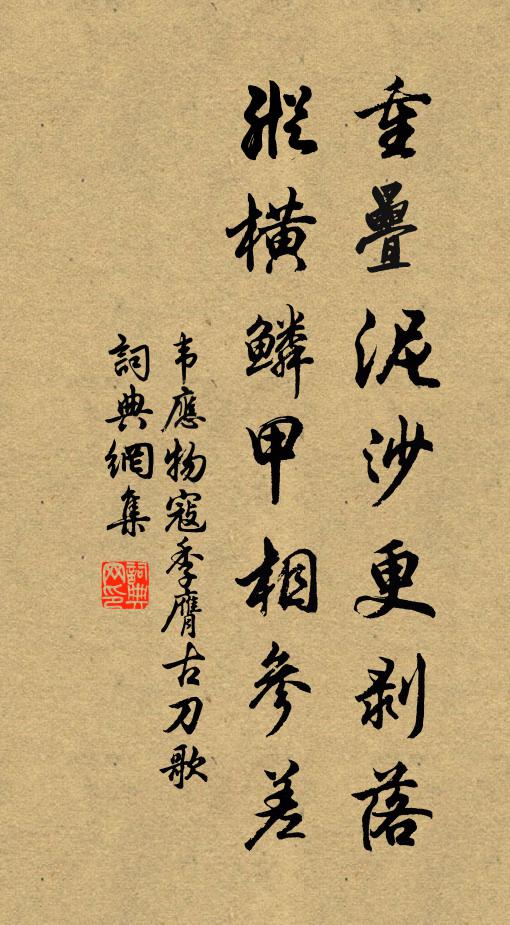 重疊泥沙更剝落
縱橫鱗甲相參差
韦應物寇季膺古刀歌
詞典網集
詞典
网印